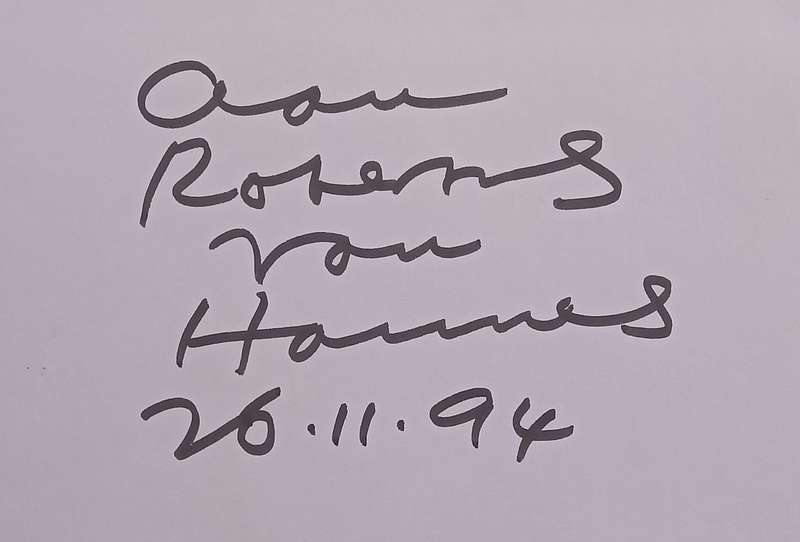 Aan
Robertus
van
Hannes
26.11.94